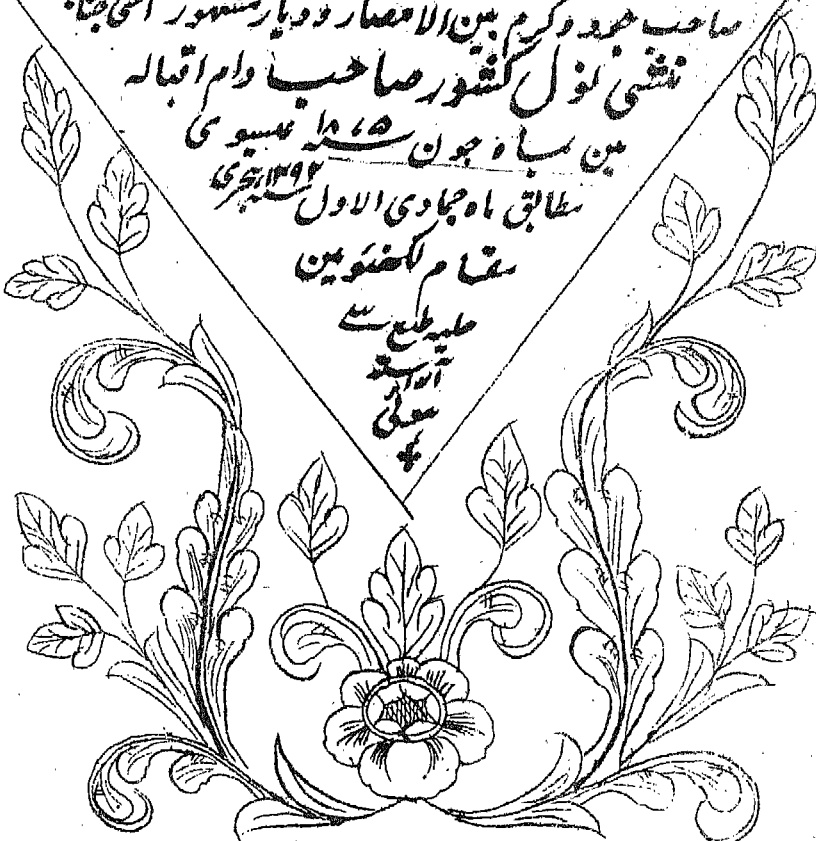 صاحب جود و کرم بین الامصار و دیار مشہور اعنی جناب
منشی نول کشور صاحب دام اقبالہ
مین بماہ جون سنہ ۱۸۷۵ عیسوی
مطابق ماہ جمادی الاول سنہ ۱۲۹۲ ہجری
مقام لکھنؤ مین
حلیہ طبع سے
آراستہ
ہوئی